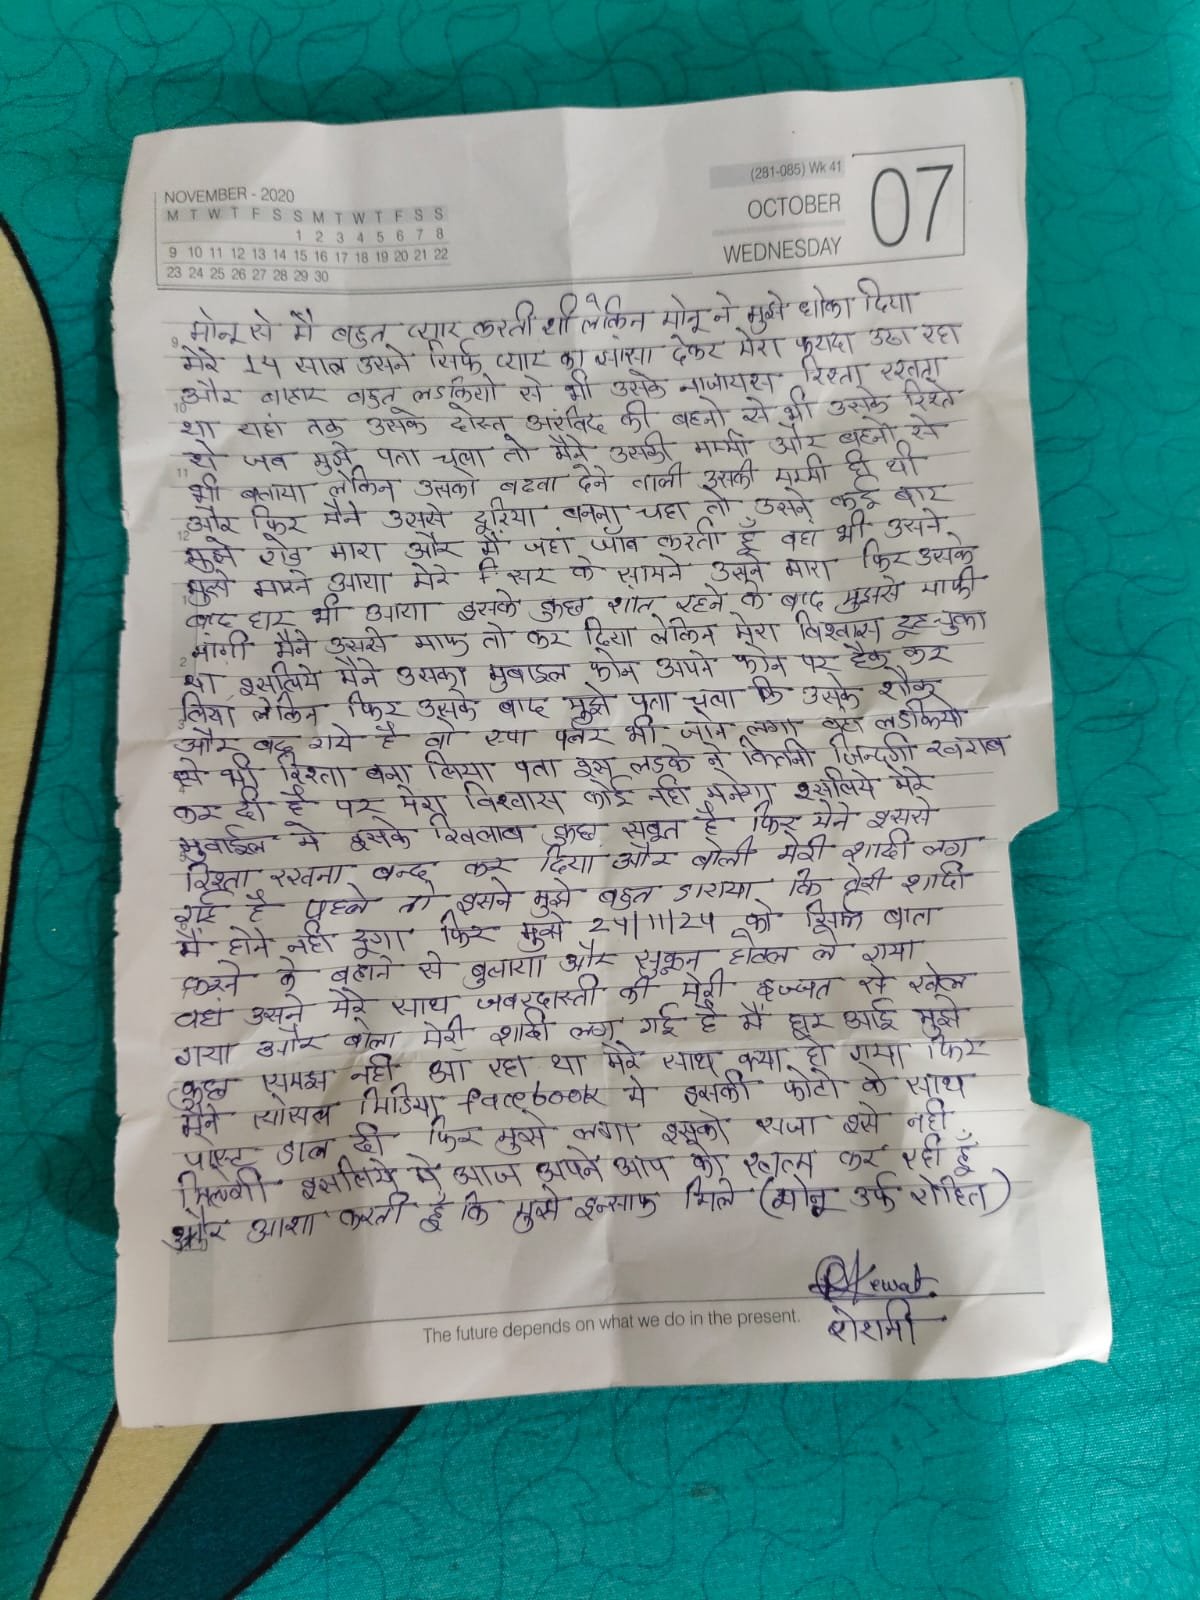 NOVEMBER - 2020
M T W T F S S M T W T F S S
1 2 3 4 5 6 7 8
9 10 11 12 13 14 15 16 17 18 19 20 21 22
23 24 25 26 27 28 29 30
(281-085) Wk 41
OCTOBER
WEDNESDAY
07
मोनू से मै बहुत प्यार करती थी लेकिन मोनू ने मुझे धोका दिया
मेरे 14 साल उसने सिर्फ प्यार का झांसा देकर मेरा फायदा उठा रहा
और बाहार बहुत लडकियो से भी उसके नाजायस रिश्ता रखता
था यहां तक उसके दोस्त अरविंद की बहनो से भी उसके रिश्ते
थे जब मुझे पता चला तो मैने उसकी मम्मी और बहनो से
भी बताया लेकिन उसको बढवा देने वाली उसकी मम्मी ही थी
और फिर मैने उससे दूरिया बनना चहा तो उसने कई बार
मुझे रोड मारा और मैं जहां जॉब करती हूँ वहा भी उसने
मुझे मारने आया मेरे सर के सामने उसने मारा फिर उसके
बाद घर भी आया इसके कुछ शांत रहने के बाद मुझसे माफी
मांगी मैने उससे माफ तो कर दिया लेकिन मेरा विश्वास टूट चुका
था इसलिये मैने उसका मुबाइल फोन अपने फोन पर हैक कर
लिया लेकिन फिर उसके बाद मुझे पता चला कि उसके शौक
और बढ गये है वो स्पा भी जाने लगा वहा लडकियो
से भी रिश्ता बना लिया पता इस लडके ने कितनी जिन्दगी खराब
कर दी है पर मेरा विश्वास कोई नही मनेगा इसलिये मेरे
मुबाईल मे इसके खिलाब कुछ सबूत है फिर मैने इससे
रिश्ता रखना बन्द कर दिया और बोली मेरी शादी लग
गई है पहले तो इसने मुझे बहुत डाराया कि तेरी शादी
मैं होने नही दूगा फिर मुझे 24/11/24 को सिर्फ बात
करने के बहाने से बुलाया और सुकून होटल ले गया
वहां उसने मेरे साथ जबरदास्ती की मेरी इज्जत से खेल
गया और बोला मेरी शादी लग गई है मैं घर आई मुझे
कुछ समझ नही आ रहा था मेरे साथ क्या हो गया फिर
मैने सोसल मिडिया facebook मे इसकी फोटो के साथ
पोस्ट डाल दी फिर मुझे लगा इसको सजा इसे नही
मिलेगी इसलिये मे आज अपने आप को खत्म कर रही हूँ
और आशा करती हूँ कि मुझे इन्साफ मिले (मोनू उर्फ रोहित)
Rkewat.
रोशनी
The future depends on what we do in the present.